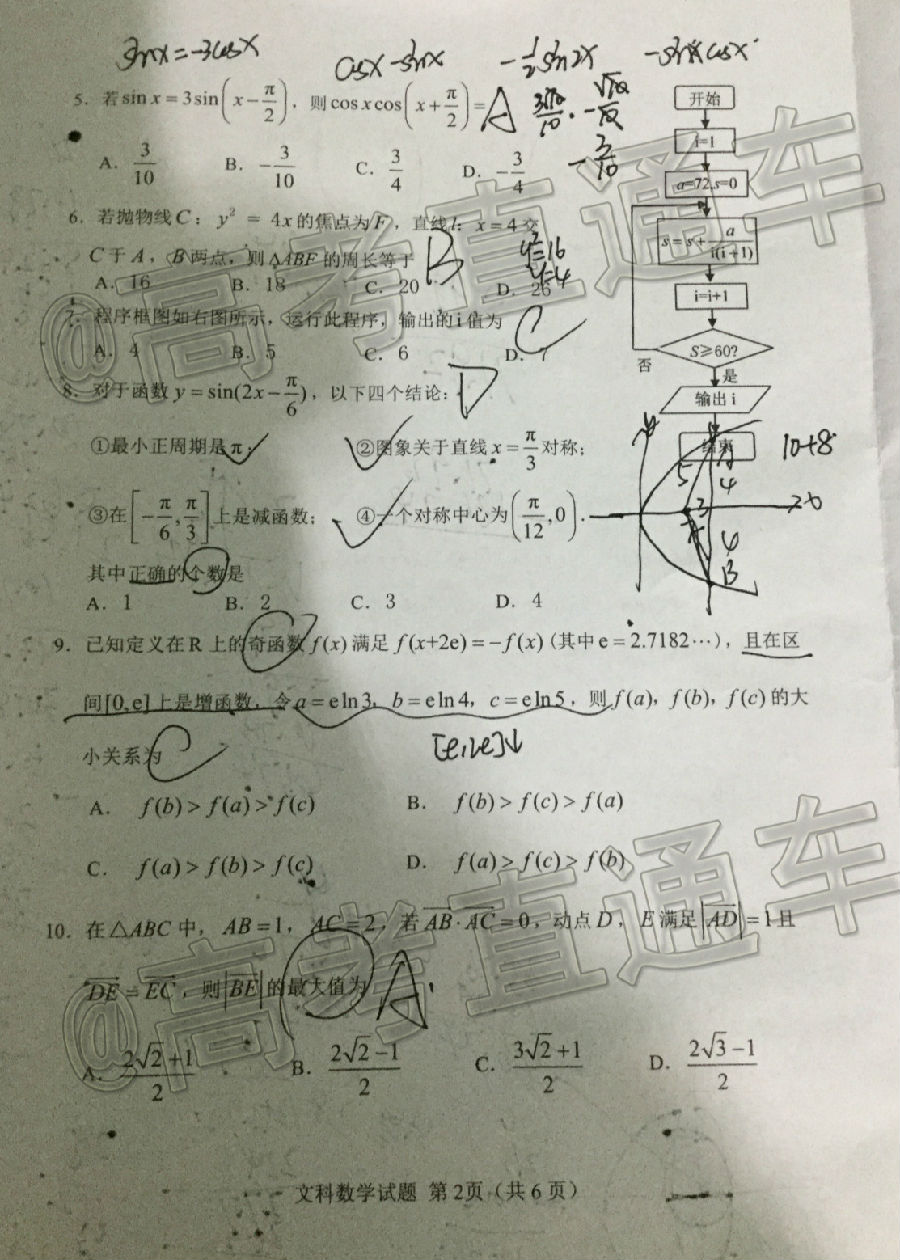 sinx=-3cosx
cosx-sinx
-1/2 sin2x
-sinxcosx
5. 若sin x=3sin(x-π/2)，则cos x cos(x+π/2)= A
3√10/10 · -√10/10
-3/10
A. 3/10 B. -3/10 C. 3/4 D. -3/4
6. 若抛物线C：y² = 4x的焦点为F，直线l：x=4交
C于A，B两点，则△ABF的周长等于 B
y²=16
y=4
A. 16 B. 18 C. 20 D. 26
7. 程序框图如右图所示，运行此程序，输出的i值为 C
A. 4 B. 5 C. 6 D. 7
8. 对于函数y=sin(2x-π/6)，以下四个结论： D
①最小正周期是π； ②图象关于直线x=π/3对称；
③在[-π/6,π/3]上是减函数； ④一个对称中心为(π/12,0).
其中正确的个数是
A. 1 B. 2 C. 3 D. 4
开始
i=1
a=72,s=0
s=s+a/i(i+1)
i=i+1
S≥60?
否
是
输出i
结束
10+8
5
4
3
4
B
9. 已知定义在R上的奇函数f(x)满足f(x+2e)=-f(x)(其中e=2.7182⋯)，且在区
间[0,e]上是增函数，令a=eln3，b=eln4，c=eln5，则f(a)，f(b)，f(c)的大
小关系为 C
[e,2e]↓
A. f(b)>f(a)>f(c) B. f(b)>f(c)>f(a)
C. f(a)>f(b)>f(c) D. f(a)>f(c)>f(b)
10. 在△ABC中，AB=1，AC=2，若AB·AC=0，动点D，E满足|AD|=1且
DE=EC，则|BE|的最大值为 A
A. (2√2+1)/2 B. (2√2-1)/2 C. (3√2+1)/2 D. (2√3-1)/2
文科数学试题 第2页（共6页）
@高考直通车
@高考直通车